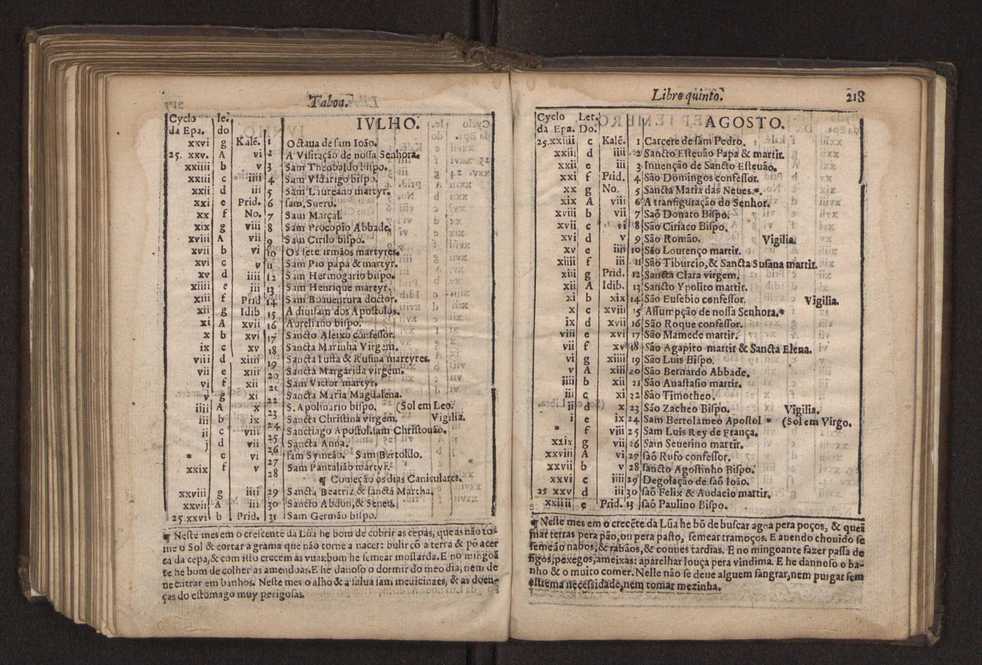 Taboa.
Cyclo le. IVLHO.
da Epa. do
xxvi g Kalē. 1 Octaua de sam Ioão.
25. xxv. A vi 2 A Visitação de nossa Senhora.
xxiiii b v 3 Sam Theobaldo bispo.
xxiii c iiii 4 Sam Vldarigo bispo.
xxii d iii 5 Sam Laureano martyr.
xxi e Prid. 6 sam Sueru.
xx f No. 7 Sam Marçal.
xix g viii 8 Sam Procopio Abbade.
xviii A vii 9 Sam Cirilo bispo.
xvii b vi 10 Os sete irmãos martyres.
xvi c v 11 Sam Pio papa & martyr.
xv d iiii 12 Sam Hermogario bispo.
xiiii e iii 13 Sam Henrique martyr.
xiii f Prid 14 Sam Boauentura doctor.
xii g Idib 15 A diuisam dos Apostolos.
xi A xvii 16 Aureliano bispo.
x b xvi 17 Sancto Aleixo confessor.
ix c xv 18 Sancta Marinha Virgem.
viii d xiiii 19 Sancta Iusta & Rufina martyres.
vii e xiii 20 Sancta Margarida virgem.
vi f xii 21 Sam Victor martyr.
v g xi 22 Sancta Maria Magdalena.
iiii A x 23 S. Apolinario bispo. (Sol em Leo.
iii b ix 24 Sancta Christina virgem. Vigilia.
ii c viii 25 Sanctiago Apostol. sam Christouão.
j d vii 26 Sancta Anna.
* e vi 27 sam Symeão. Sam Bertoldo.
xxix f v 28 Sam Pantalião martyr.
¶ Começão os dias Caniculares.
xxviii g iiii 29 Sancta Beatriz & sancta Marcha.
xxvii A iii 30 Sancto Abdon, & Senen.
25.xxvi b Prid. 31 Sam Germão bispo.
¶ Neste mes em o crescente da Lũa he bom de cobrir as cepas, que as não to-
me o Sol & cortar a grama que não torne a nacer: bulir cõ a terra & pó acer
ca da cepa, & com isto crecem as vuas: bom he semear mostarda. E no mingoã
te he bom de colher as amendoas. E he danoso o dormir do meo dia, nem de
ue entrar em banhos. Neste mes o alho & a salua sam medicinaes, & as doen-
ças do estomago muy perigosas.
Libro quinto. 218
Cyclo Let. AGOSTO.
da Epa. Do.
25.xxiiii c Kalē. 1 Carcere de sam Pedro.
xxiii d iiii 2 Sancto Esteuão Papa & martir.
xxii e iii 3 Inuenção de Sancto Esteuão.
xxi f Prid. 4 São Domingos confessor.
xx g No. 5 Sancta Maria das Neues.*
xix A viii 6 A transfiguração do Senhor.
xviii b vii 7 Saõ Donato Bispo.
xvii c vi 8 São Ciriaco Bispo.
xvi d v 9 São Romão. Vigilia.
xv e iiii 10 São Lourenço martir.
xiiii f iii 11 São Tiburcio, & Sancta Susana martir.
xiii g Prid. 12 Sancta Clara virgem.
xii A Idib. 13 Sancto Ypolito martir.
xi b xix 14 São Eusebio confessor. Vigilia.
x c xviii 15 Assumpção de nossa Senhora.*
ix d xvii 16 São Roque confessor.
viii e xvi 17 São Mamede martir.
vii f xv 18 São Agapito martir & Sancta Elena.
vi g xiiii 19 São Luis Bispo.
v A xiii 20 São Bernardo Abbade.
iiii b xii 21 São Anastasio martir.
iii c xi 22 São Timotheo.
ii d x 23 São Zacheo Bispo. Vigilia.
i e ix 24 Sam Bertolameo Apostol * (Sol em Virgo.
* f viii 25 Sam Luis Rey de França.
xxix g vii 26 Sam Seuerino martir.
xxviii A vi 27 saõ Rufo confessor.
xxvii b v 28 sancto Agostinho Bispo.
xxvi c iiii 29 Degolação de saõ Ioão.
25 xxv d iii 30 saõ Felix & Audacio martir,
xxiiii e Prid. 31 saõ Paulino Bispo.
¶ Neste mes em o crecēte da Lũa he bõ de buscar agoa pera poços, & quei
mar terras pera pão, ou pera pasto, semear tramoços. E auendo chouido se
semeão nabos, & rabãos, & couues tardias. E no mingoante fazer passa de
figos, pexegos, ameixas: aparelhar louça pera vindima. E he danneso o ba-
nho & o muito comer. Nelle não se deue alguem sangrar, nem purgar sem
estrema necessidade, nem tomar mezinha.